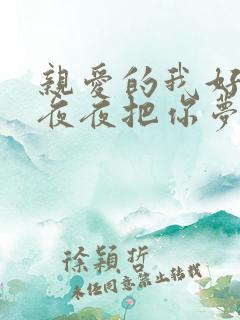 親愛的我好
夜夜把你夢
徐穎哲
未经同意禁止转载